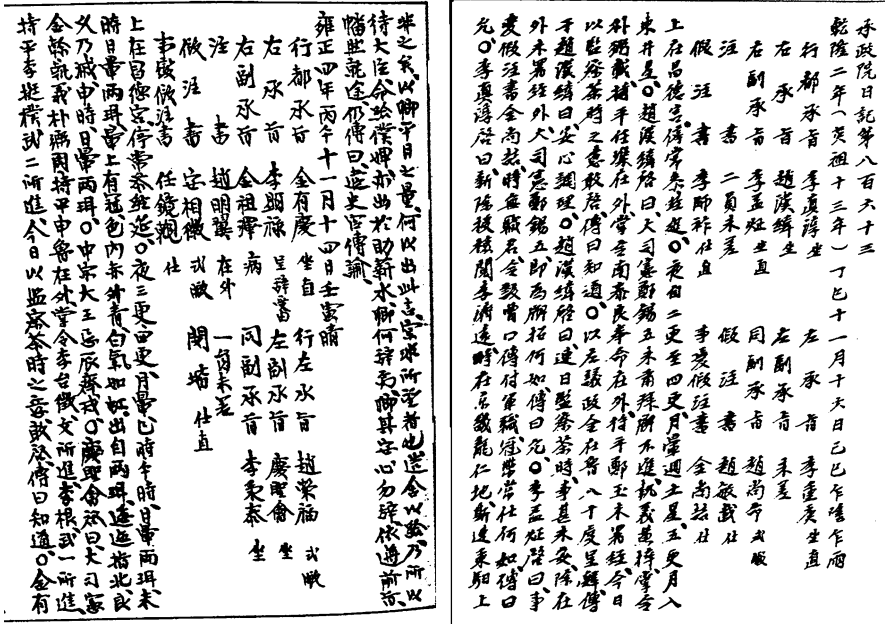 承政院日記第八百六十三
乾隆二年(英祖十三年)丁巳十一月十六日己巳乍陰乍雨
行都承旨 李真淳坐 左承旨 李重庚坐直
右承旨 趙漢緯坐 左副承旨 未差
右副承旨 李益炡坐直 同副承旨 趙尚命式暇
注書 二員未差 假注書 趙敏或仕
假注書 李師祚仕直 事變假注書 金尚喆仕
上在昌德宮停常參經筵○夜自二更至四更月暈週土星五更月入
東井星○趙漢緯啓曰大司憲鄭錫五未肅拜所不進執義黃梓掌令
朴弼載持平任在外掌令南泰良奉命在外持平鄭玉未署經今日
以監察茶時之意敢啓傳曰知道○以左議政金在魯八十度呈辭傳
于趙漢緯曰安心調理○趙漢緯啓曰連日監察茶時事甚未安除在
外未署經外大司憲鄭錫五卽為牌招何如傳曰允○李益炡啓曰事
變假注書金尚喆時無職名令該曹口傳付軍職冠帶常仕何如傳曰
允○李真淳啓曰新除授檢閱李濟遠時在京畿龍仁地斯速乘馹上
非之矣以卿平日之量何以出此言實非所望者也造舍以給乃所以
待大臣命給僕婢亦出於助薪水卿何辭焉卿其安心勿辭依遵前旨
幡然就途仍傳曰遣史官傳諭
雍正四年丙午十一月十四日壬寅晴
行都承旨 金有慶坐直 行左承旨 趙榮福式暇
左承旨 李明祿呈辭單 左副承旨 慶聖會坐
右副承旨 金祖澤病 同副承旨 李秉泰坐
注書 趙明翼在外 一員未差
假注書 宋相徽式暇 閔墡仕直
事變假注書 任鏡觀仕
上在昌德宮停常參經筵○夜三更四更月暈巳時午時日暈兩珥未
時日暈兩珥暈上有冠色內赤外青白氣如虹出自兩珥逶迤指北良
久乃滅申時日暈兩珥○中宗大王忌辰齋戒○慶聖會啓曰大司憲
金榦執義朴弼周持平申魯在外掌令李台徵文所進李根武一所進
持平李挺樸武二所進今日以監察茶時之意敢啓傳曰知道○金有